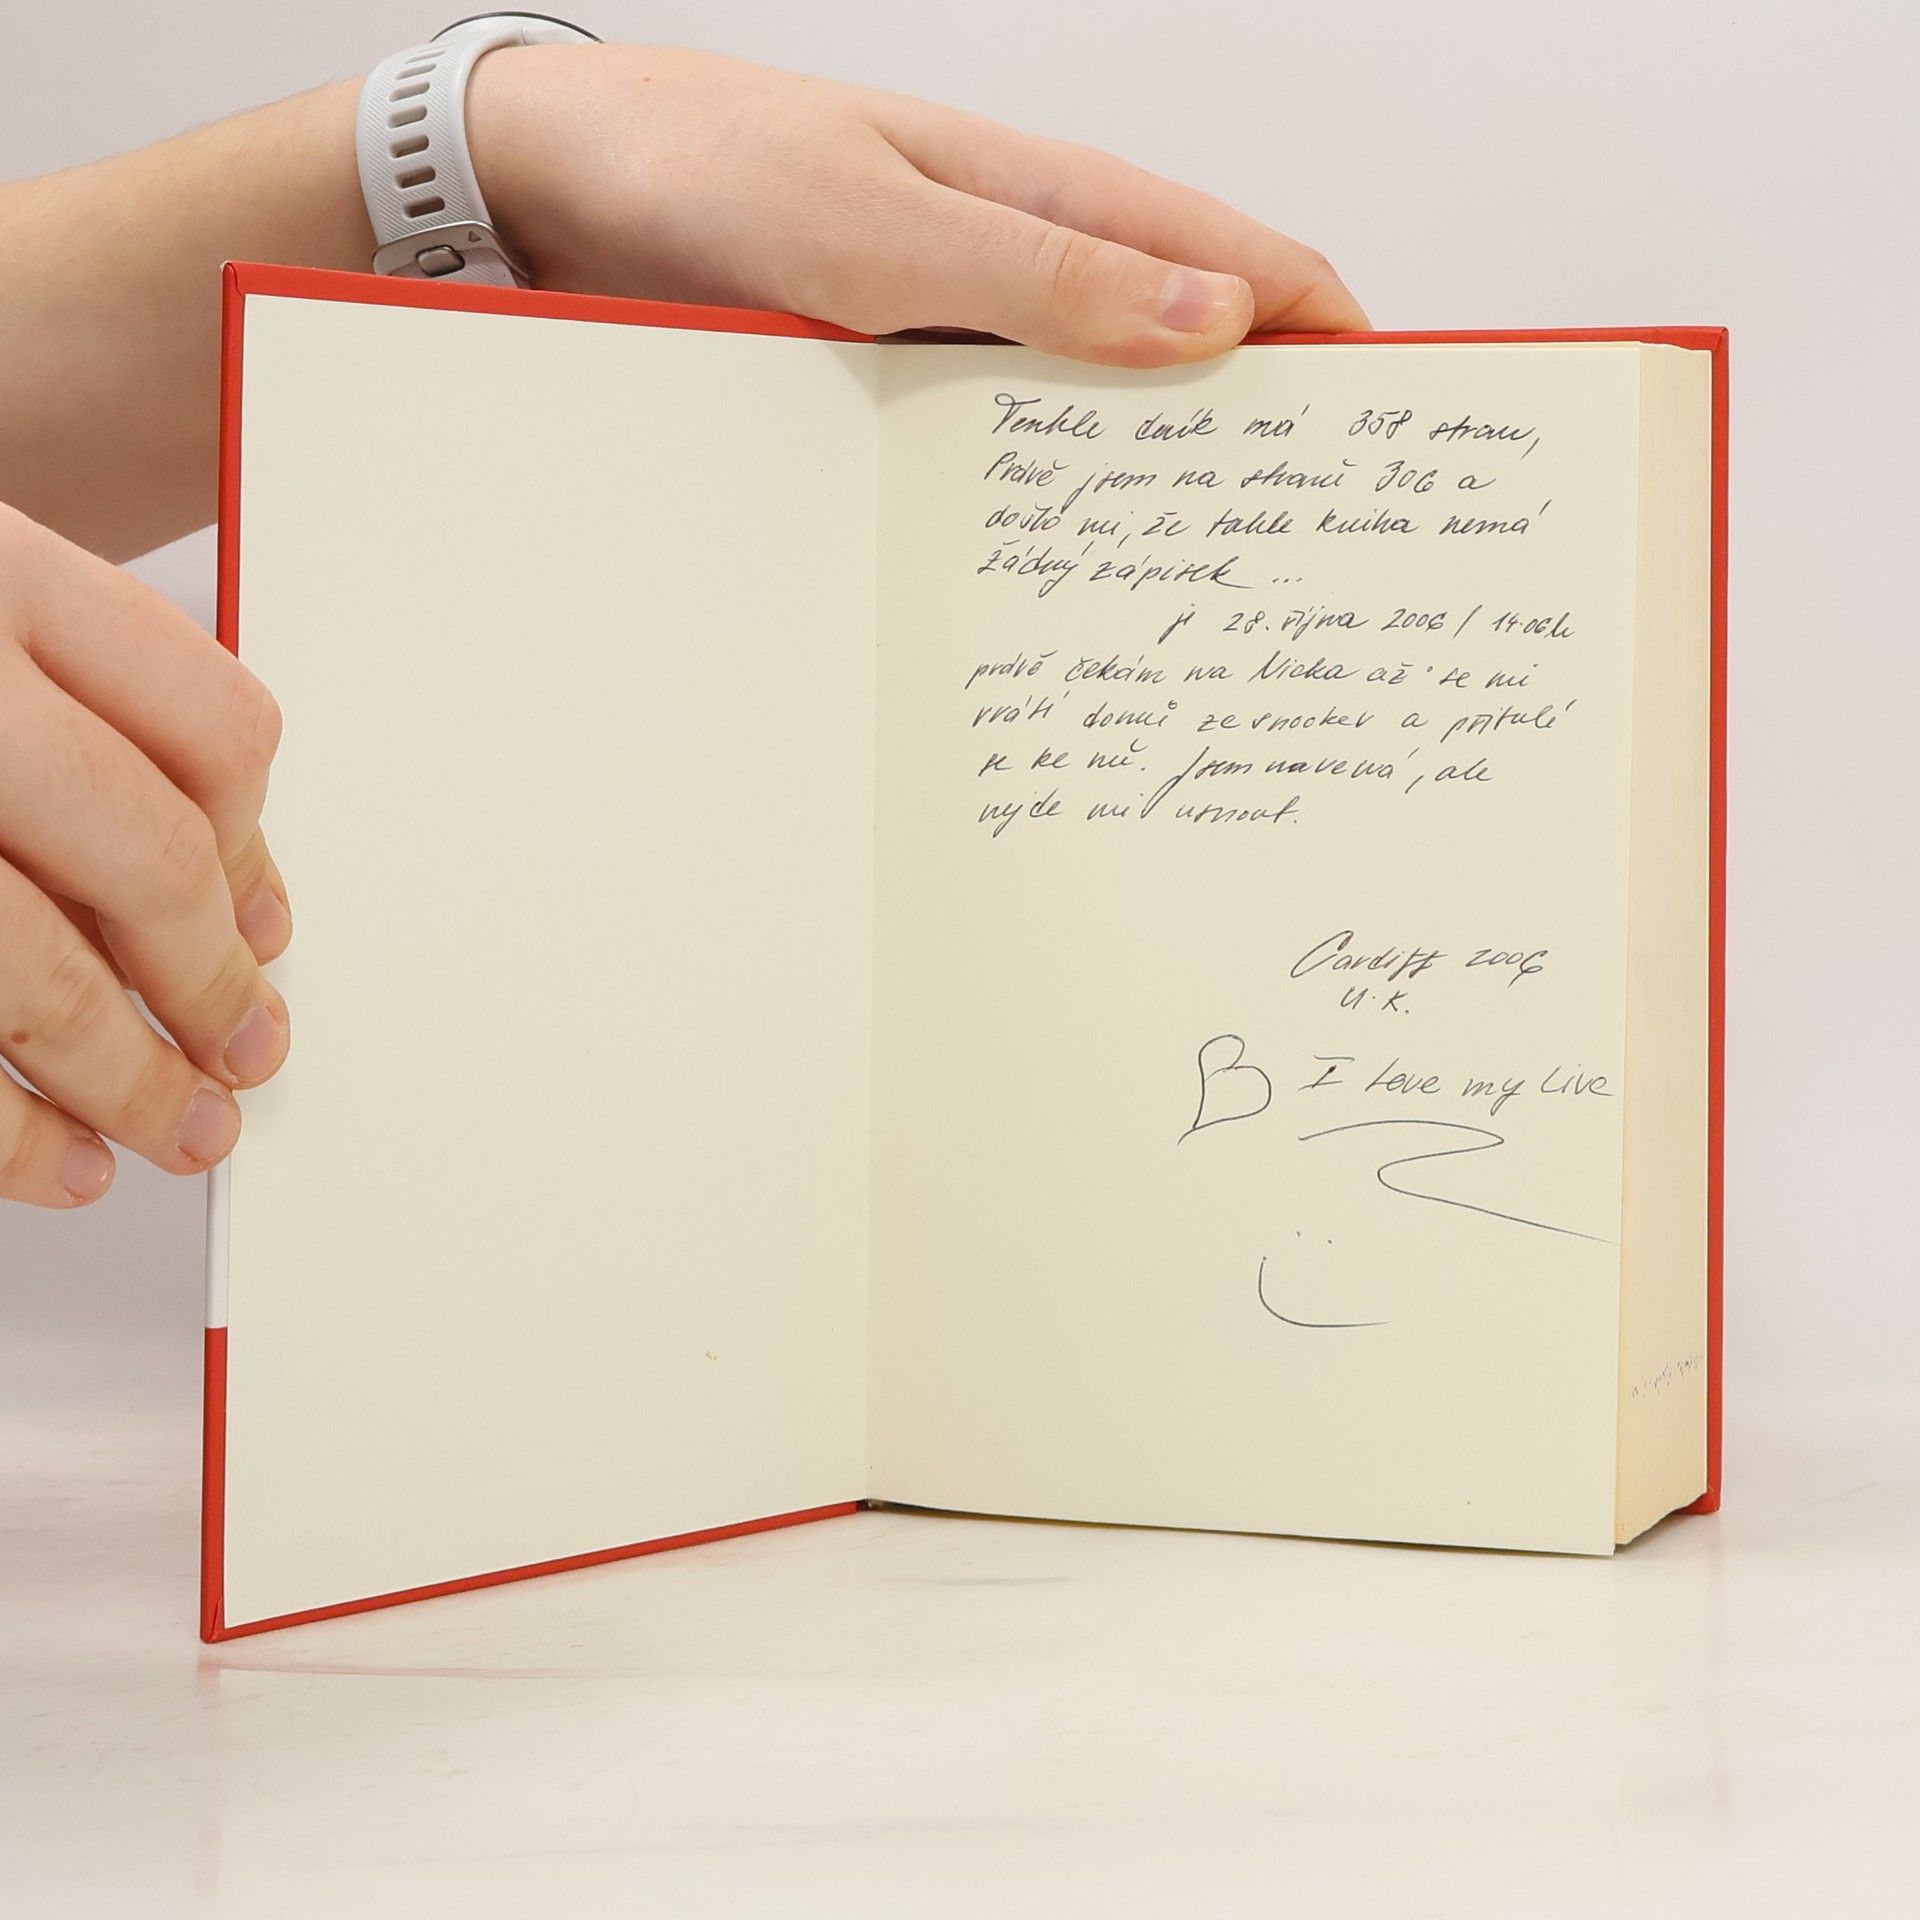 Tenhle deník má 358 stran,
Právě jsem na straně 306 a
došlo mi, že tahle kniha nemá
žádný zápisek ...
je 28. října 2006 / 14.06h
právě čekám na Nicka až se mi
vrátí domů ze snooker a přitulí
se ke mě. Jsem unavená, ale
nejde mi usnout.
Cardiff 2006
U.K.
I Love my Live